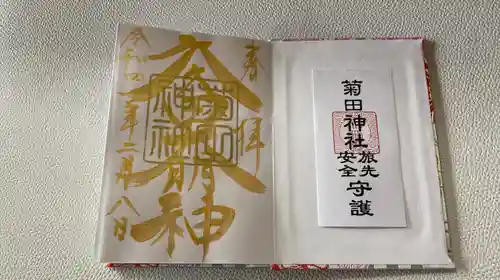 奉拝
大明神
令和四年二月八日
菊田神社
旅先
安全
守護